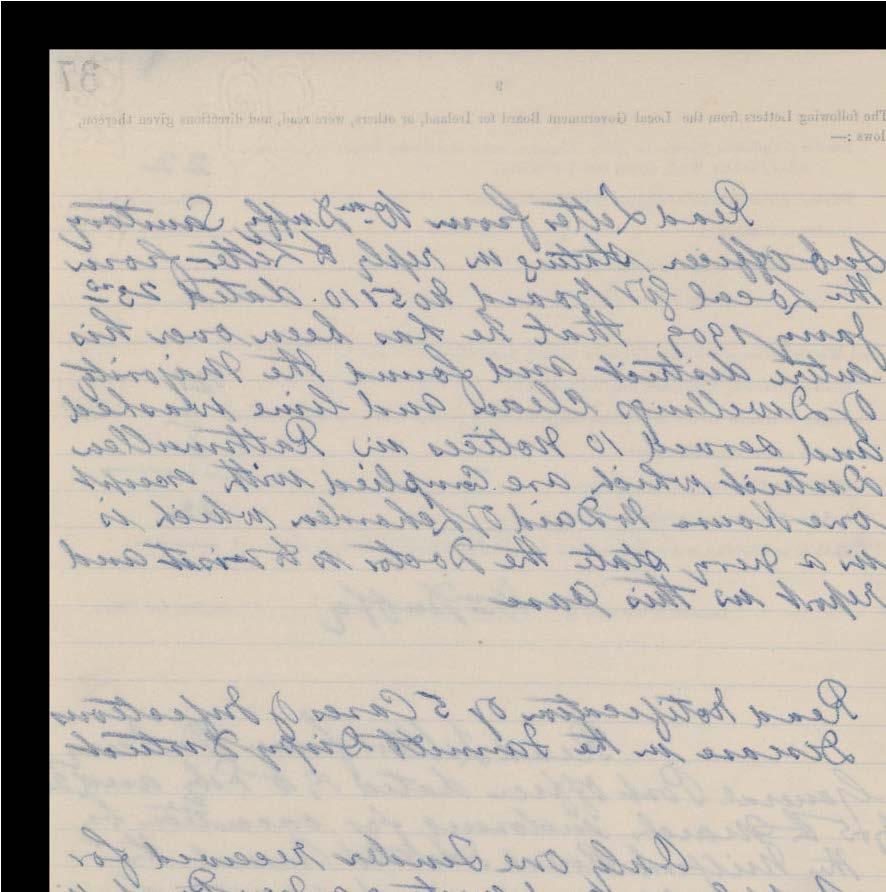 37
9
The following Letters from the Local Government Board for Ireland, or others, were read, and directions given thereon,
lows :—
Read Letter from Wm Duffy Sanitary
Sub Officer stating in reply to Letter from
the Local Govt Board No 5410. dated 23rd
Jany 1909. that he has been over his
entire district and found the Majority
of Dwellings Clean and lime washed
and served 10 Notices in Rathmullen
District which are Complied with except
one House is
in a very state the Doctor is to visit and
report in this case
Read Notification of 5 Cases of Infectious
Disease in the Tamney Dispy District
Only one Tender received for